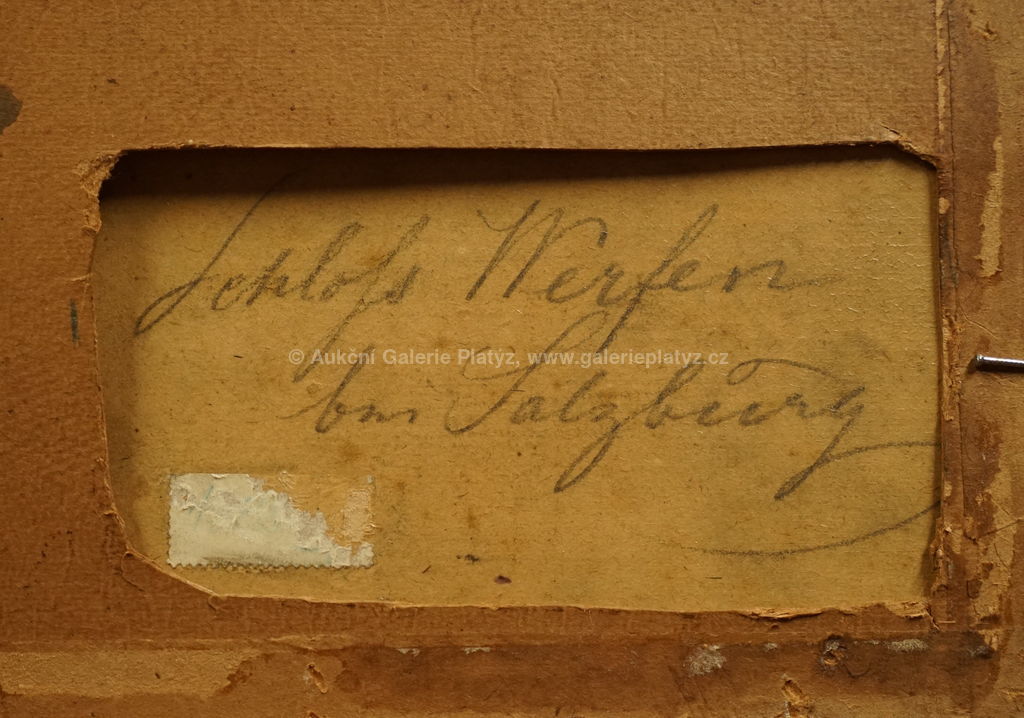 Schloſs Werfen
© Aukční Galerie Platýz, www.galerieplatyz.cz
bei Salzburg